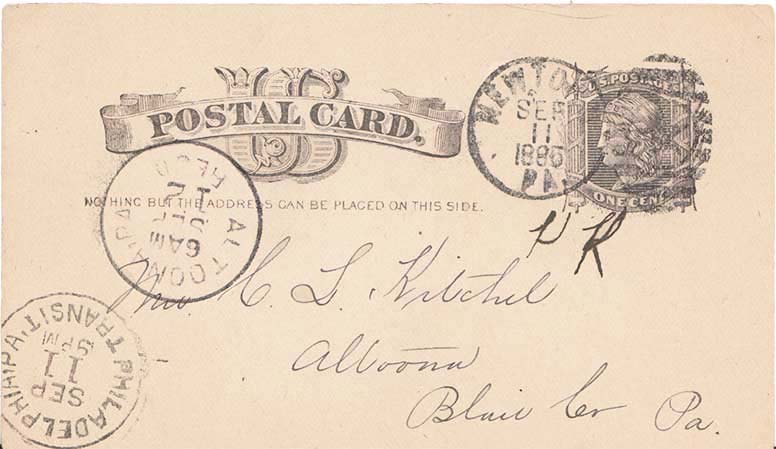 POSTAL CARD.
U.S. POSTAGE
ONE CENT
NEWTO
SEP
11
PA.
NOTHING BUT THE ADDRESS CAN BE PLACED ON THIS SIDE.
ALTOONA PA
REC'D
6AM
C. L. Kitchel
Altoona
Blair Co Pa.
PHILADELPHIA, PA.
TRANSIT
SEP
11
9PM